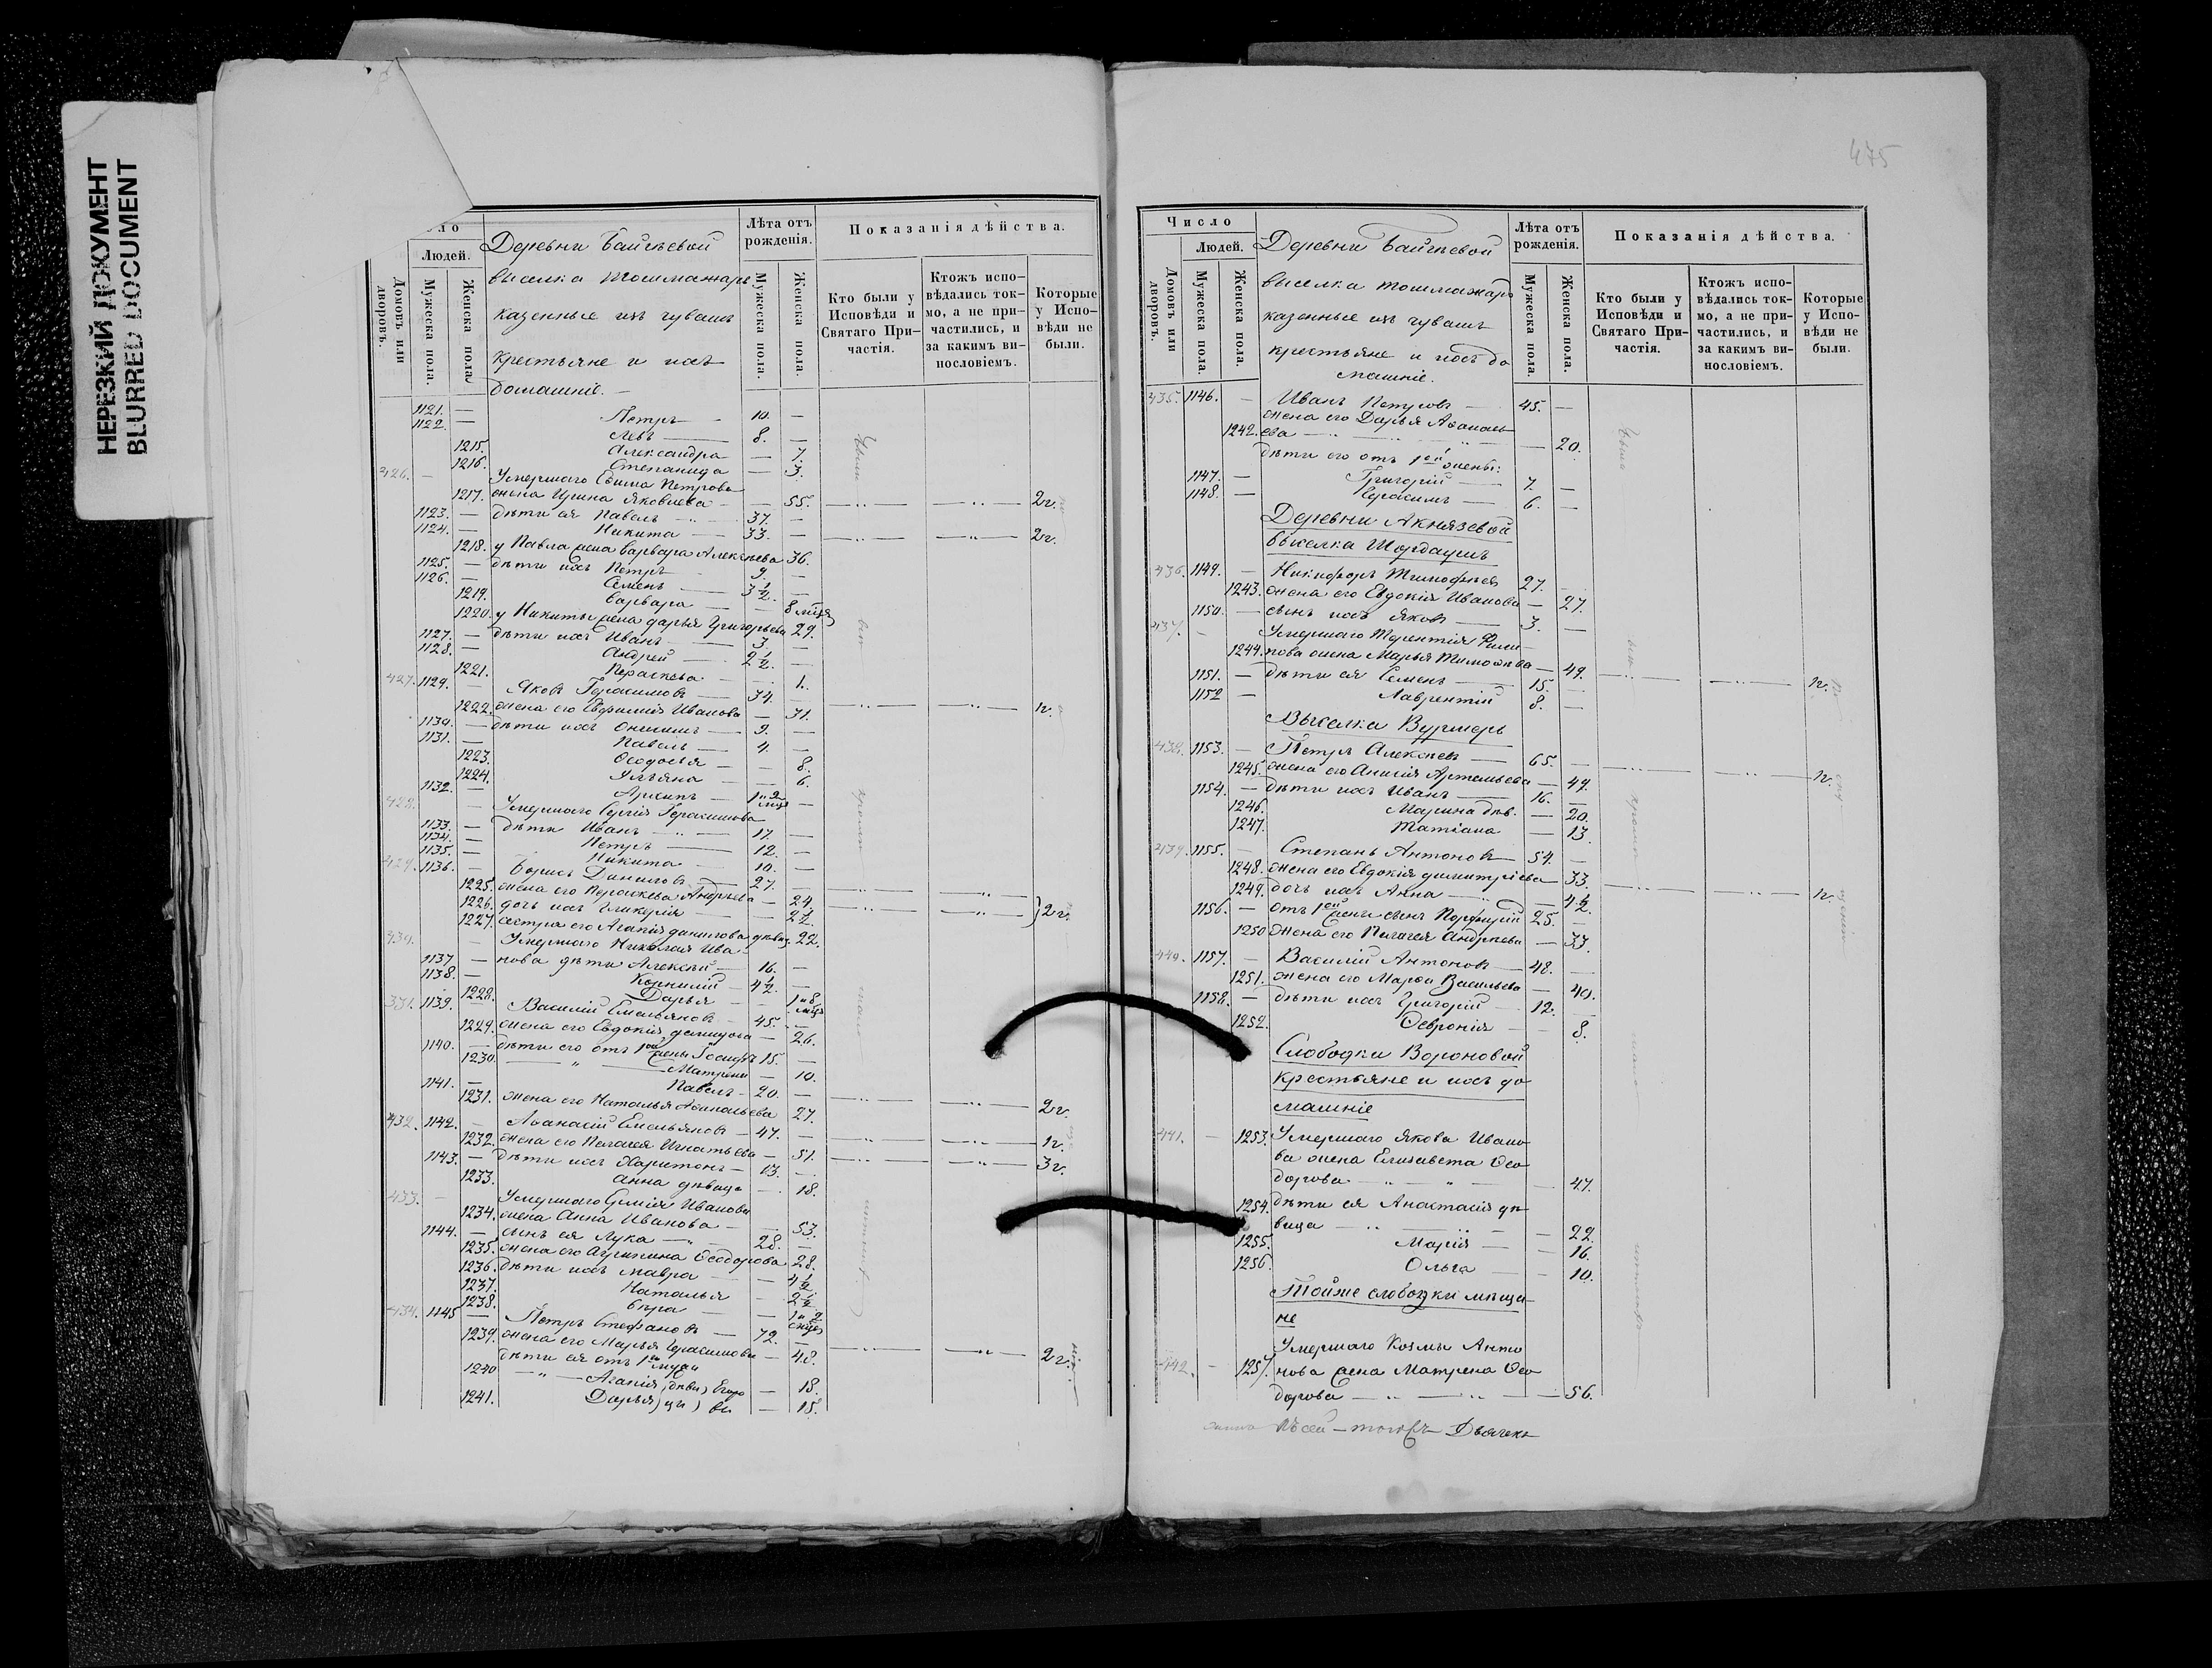 НЕРЕЗКИЙ ДОКУМЕНТ
BLURRED DOCUMENT
Людей.
Домовъ или дворовъ.
Мужеска пола.
Женска пола
Деревни Байгѣевой
выселка Тошмажаръ
казенные изъ чувашъ
крестьяне и ихъ
домашніе. —
Лѣта отъ рожденія.
Мужеска пола.
Женска пола.
Показанія дѣйства.
Кто были у Исповѣди и Святаго Причастія.
Ктожъ исповѣдались токмо, а не причастились, и за какимъ винословіемъ.
Которые у Исповѣди не были.
1121. — Петръ — 10. —
1122. — Левъ — 8. —
1215. Александра — 7.
1216. Степанида — 3.
426. — Умершаго Петрова
1217. жена Ирина Яковлева — 55. 2 г.
1123. — дѣти ея Павелъ — 37. —
1124. — Никита — 33. — 2 г.
1218. у Павла жена Варвара Алексѣева 36.
1125. — дѣти ихъ Петръ 9. —
1126. — Семенъ — 3 1/2. —
1219. Варвара — 8 мцъ
1220. у Никиты жена Дарья Григорьева 29.
1127. — дѣти ихъ Иванъ — 3. —
1128. — Андрей — 2 1/2. —
1221. Параскева — 1.
427. 1129. — Яковъ Герасимовъ — 34. —
1222. жена его Евфимія Иванова — 31. 1 г.
1130. — дѣти ихъ Онисимъ — 9. —
1131. — Павелъ — 4. —
1223. Ѳеодосья — 8.
1224. Ульяна — 6.
1132. — Архипъ — —
428. — Умершаго Сергія Герасимова
1133. — дѣти Иванъ — 17. —
1134. — Петръ — 12. —
1135. — Никита — 10. —
429. 1136. — Борисъ Даниловъ — 27. —
1225. жена его Параскева Андреева — 24.
1226. дочь ихъ Гликерія — 2 1/2 2 г.
1227. сестра его Агапія Данилова дѣвиц. 22.
430. — Умершаго Николая Ива-
1137 — нова дѣти Алексѣй — 16. —
1138. — Корнилій — 4 1/2. —
1228. Дарья — 1 и 8 мцъ
431. 1139. Василій Емельяновъ — 45. —
1229. жена его Евдокія — 26.
1140. — дѣти его отъ 1ой жены Іосифъ 15. —
1230. Матрена — 10.
1141. — Павелъ — 20. —
1231. жена его Наталья Аѳанасьева 27. 2 г.
432. 1142. — Аѳанасій Емельяновъ — 47. — 1 г.
1232. жена его Пелагея Игнатьева — 51. 3 г.
1143. — дѣти ихъ Харитонъ — 13. —
1233. Анна дѣвица — 18.
433. — Умершаго Иванова
1234. жена Анна Иванова — 53.
1144. — сынъ ея Лука — 28. —
1235. жена его Агрипина Ѳеодорова 28.
1236. дѣти ихъ Мавра — 4 1/2
1237. Наталья — 2 1/2
1238. Вѣра —
434. 1145 — Петръ Стефановъ — 72. —
1239. жена его Марья Герасимова — 48. 2 г.
дѣти ея отъ 1го мужа
1240 Агапія (дѣви) Егоро — 18.
1241. Дарья (цы) вы — 15.
475
Число
Людей.
Домовъ или дворовъ.
Мужеска пола.
Женска пола.
Деревни Байгѣевой
выселка Тошмажаръ
казенные изъ чувашъ
крестьяне и ихъ до
машніе.
Лѣта отъ рожденія.
Мужеска пола.
Женска пола.
Показанія дѣйства.
Кто были у Исповѣди и Святаго Причастія.
Ктожъ исповѣдались токмо, а не причастились, и за какимъ винословіемъ.
Которые у Исповѣди не были.
435. 1146. — Иванъ Петровъ — 45. —
жена его Дарья Аѳанась-
1242. ева — 20.
дѣти его отъ 1ой жены:
1147. — Григорій — 7. —
1148. — Герасимъ — 6. —
Деревни Акнязевой
выселка Шордаушъ
436. 1149. — Никифоръ Тимофѣевъ 27. —
1243. жена его Евдокія Иванова — 27.
1150. — сынъ ихъ Яковъ — 3. —
437. — Умершаго Терентія Фили-
1244. пова жена Марья Тимоѳѣева — 49.
1151. — дѣти ея Семенъ — 15. — 1 г.
1152 — Лаврентій 8. —
Выселка Вурмеръ
438. 1153. — Петръ Алексѣевъ — 65. —
1245. жена его Анисія Артемьева — 49. 1 г.
1154. — дѣти ихъ Иванъ — 16. —
1246. Марина дѣв. — 20.
1247. Татіана — 13
439. 1155. — Степанъ Антоновъ — 54. —
1248. жена его Евдокія Димитріева 33.
1249. дочь ихъ Анна — 4 1/2. 1 г.
1156. — отъ 1ой жены сынъ Порфирій 25. —
1250 жена его Пелагея Андреева — 33.
440. 1157. — Василій Антоновъ — 48. —
1251. жена его Марѳа Васильева — 40.
1158. — дѣти ихъ Григорій — 12. —
1252. Ѳевронія — 8.
Слободки Вороновой
крестьяне и ихъ до
машніе
441. — 1253. Умершаго Якова Ивано-
ва жена Елизавета Ѳео
дорова — 47.
1254. дѣти ея Анастасія дѣ
вица — 22.
1255. Марія — 16.
1256. Ольга — 10.
Тойже слободки мѣща-
не
Умершаго Козмы Анто
442. — 1257. нова жена Матрена Ѳео
дорова — 56.
Дьячекъ